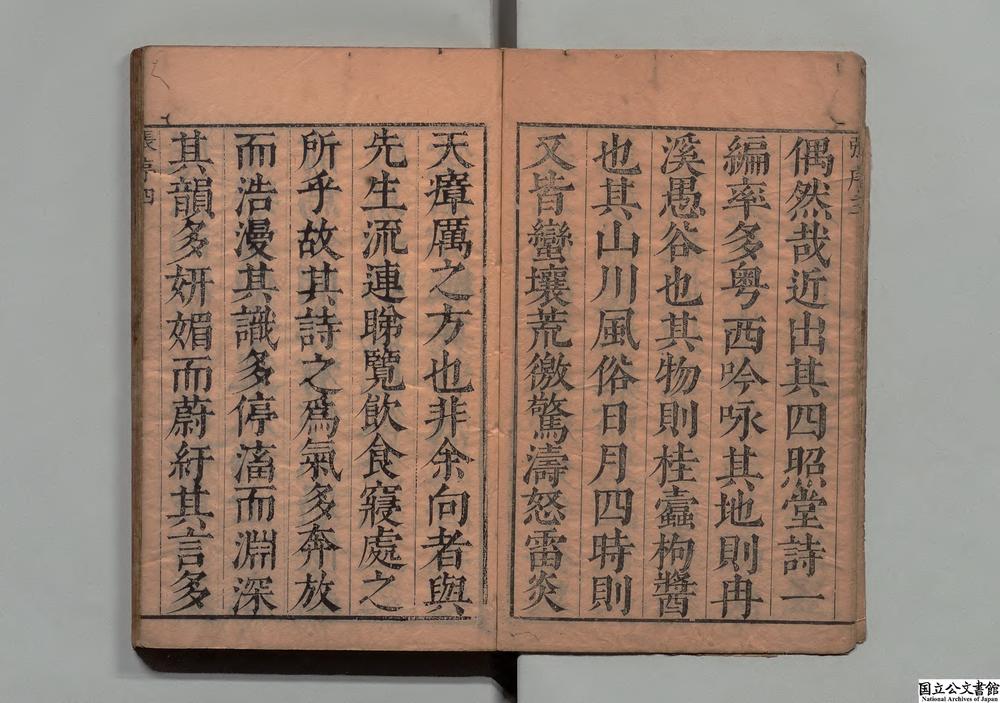 偶然哉近出其四照堂詩一
編率多粤西吟咏其地則冉
溪愚谷也其物則桂蠹枸醬
也其山川風俗日月四時則
又皆蠻壤荒徼驚濤怒雷炎
天瘴厲之方也非余向者與
先生流連睇覽飲食寢處之
所乎故其詩之爲氣多奔放
而浩漫其識多停滀而淵深
其韻多妍媚而蔚紆其言多
張序四
国立公文書館
National Archives of Japan